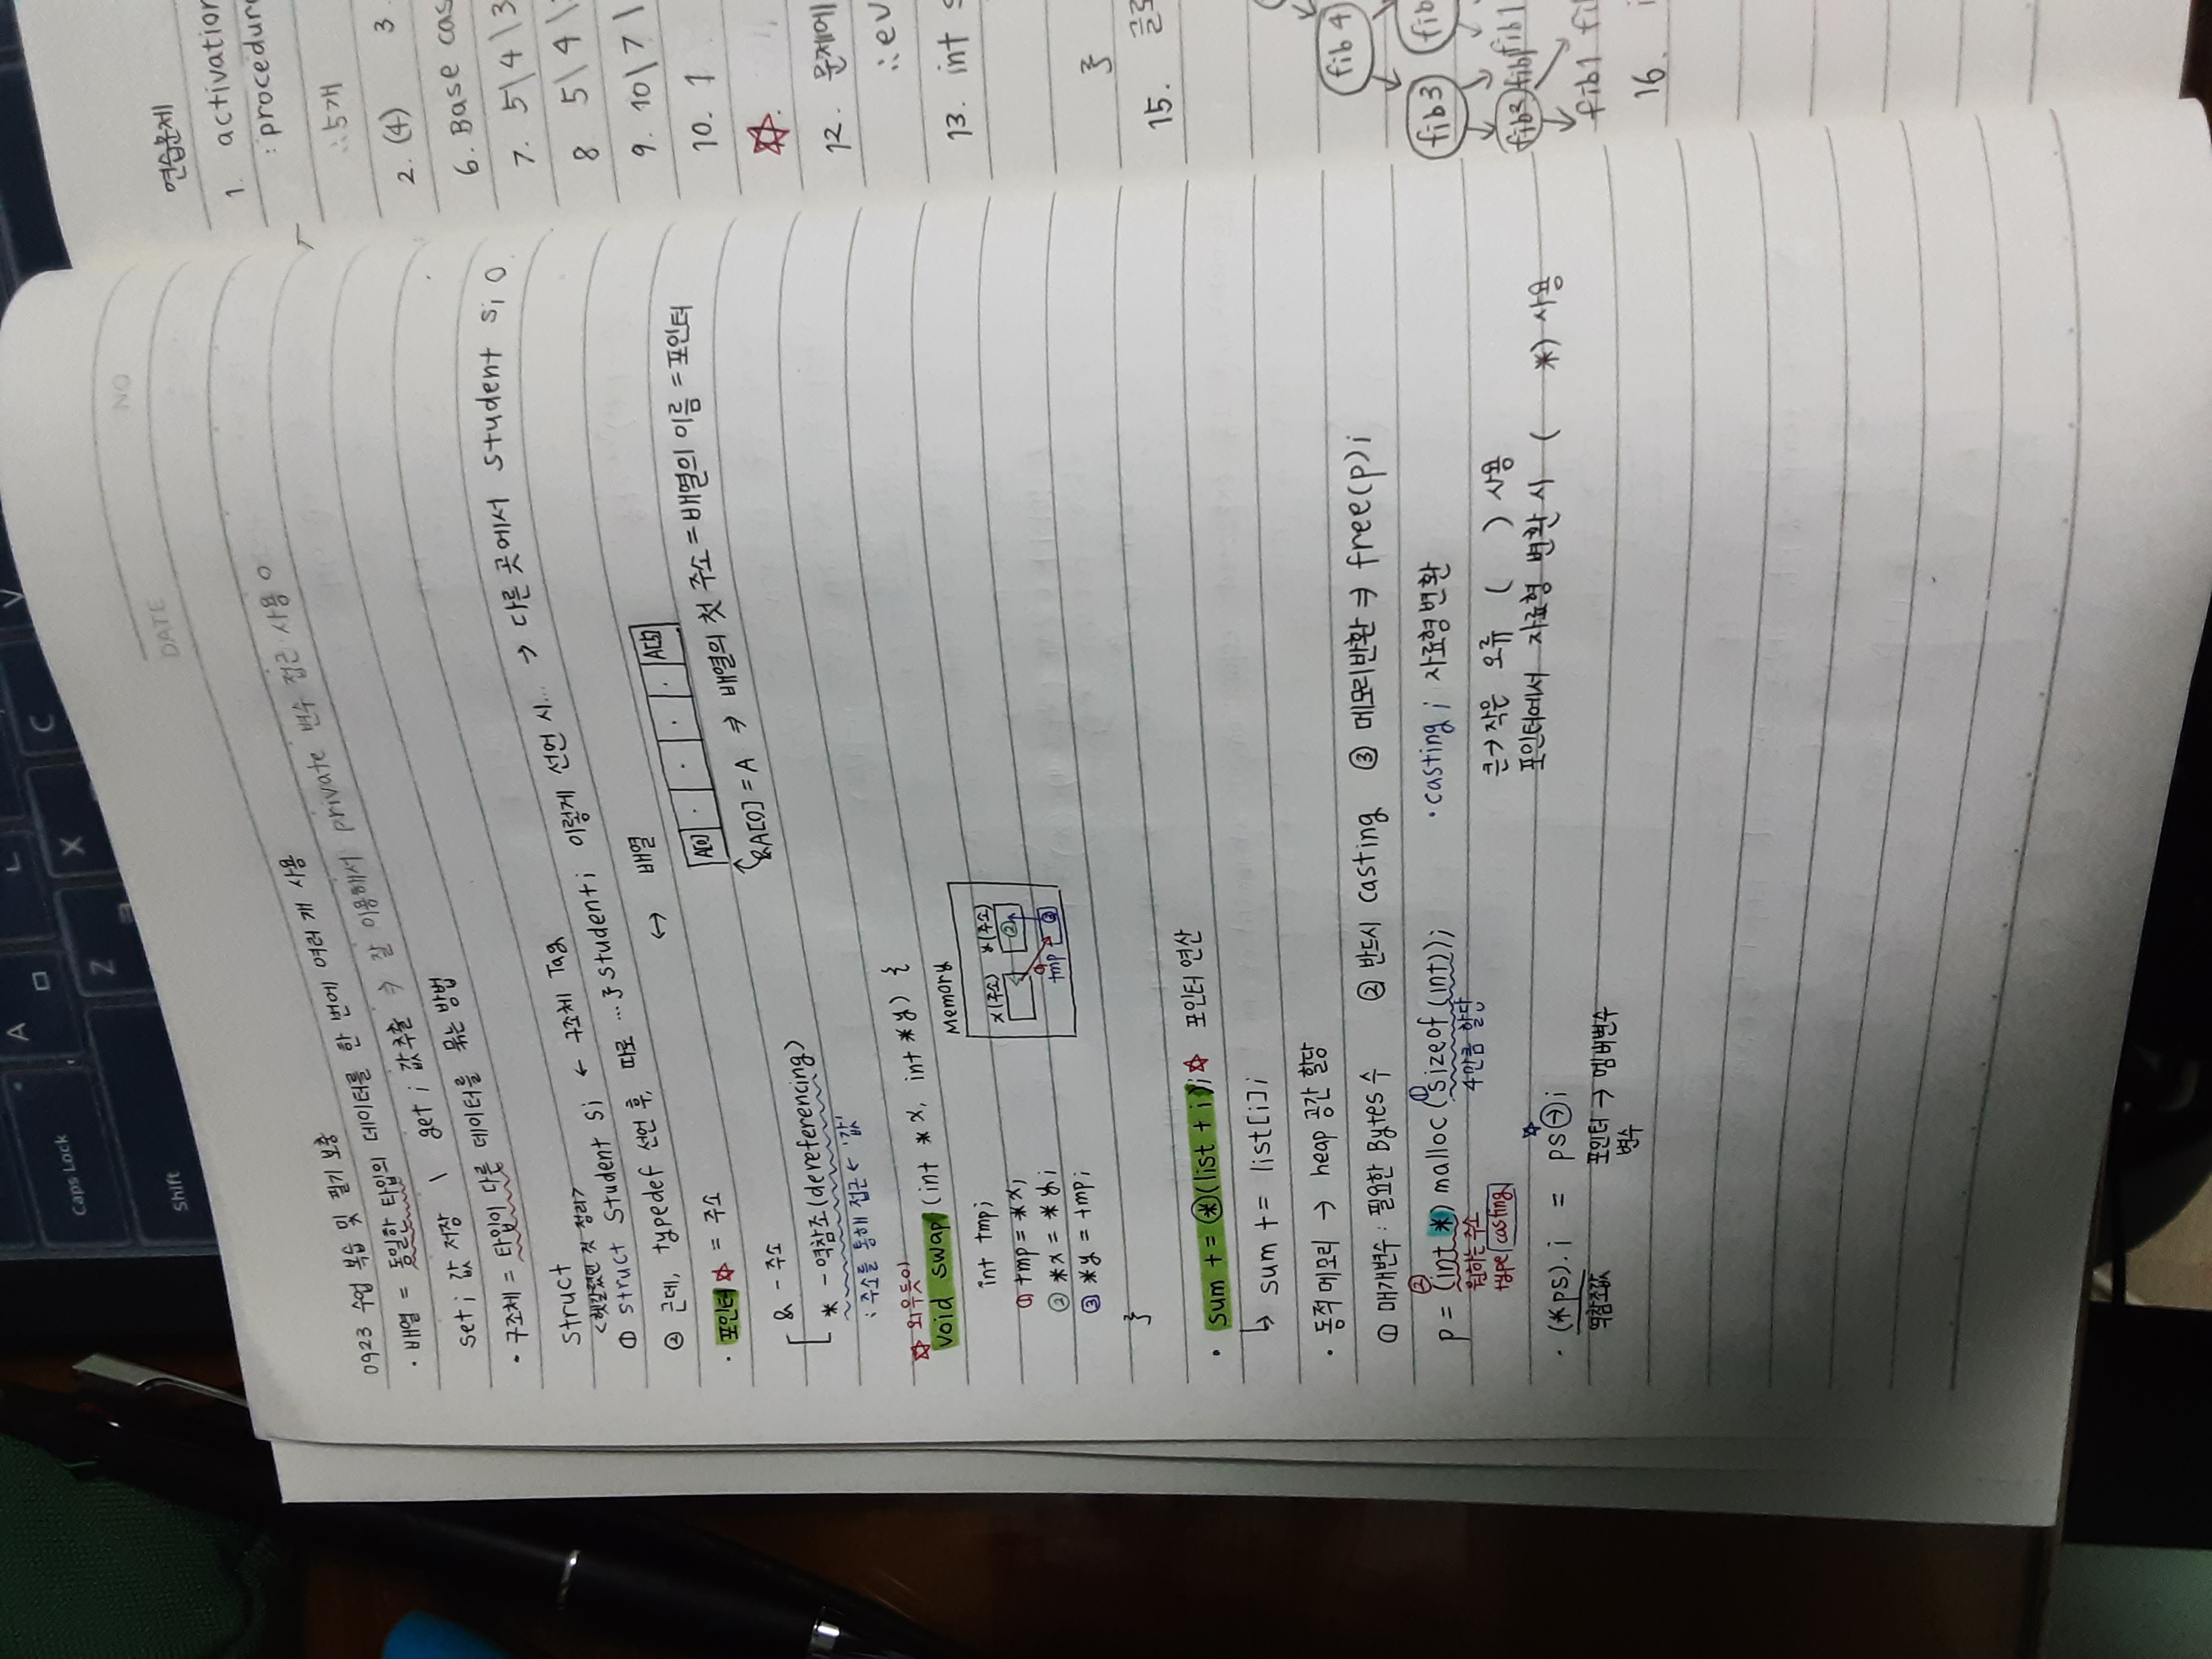 A
ㅁ
ㄴ
V
Caps Lock
Z
ㅋ
X
C
Shift
NO
DATE
0923 수업 복습 및 필기 보충
· 배열 = 동일한 타입의 데이터를 한 번에 여러 개 사용
set ; 값 저장 \ get ; 값 추출 ⇒ 잘 이용해서 private 변수 접근 사용 O
· 구조체 = 타입이 다른 데이터를 묶는 방법
struct
<헷갈렸던 것 정리>
① struct Student s; ← 구조체 Tag
② 근데, typedef 선언 후, 따로 ... } student; 이렇게 선언 시... → 다른 곳에서 student s; O
· 포인터 ☆ = 주소 ↔ 배열
A[0] · · · · A[5]
&A[0] = A ⇒ 배열의 첫 주소 = 배열의 이름 = 포인터
& - 주소
* - 역참조(dereferencing)
: 주소를 통해 접근 ← '값'
☆ 외우듯이
void swap (int *x, int *y) {
int tmp;
① tmp = *x;
② *x = *y;
③ *y = tmp;
}
Memory
x(주소) y(주소)
②
①
tmp ③
· sum += *(list + i); ☆ 포인터 연산
↳ sum += list[i];
· 동적 메모리 → heap 공간 할당
① 매개변수 : 필요한 Bytes 수 ② 반드시 casting ③ 메모리반환 ⇒ free(p);
② ①
p = (int *) malloc (sizeof (int));
원하는 주소 4만큼 할당
type casting
· casting ; 자료형 변환
큰→작은 오류 ( ) 사용
포인터에서 자료형 변환 시 ( *) 사용
☆
· (*ps).i = ps→i
역참조값 포인터 → 멤버변수
변수
연습문제
1. activation
: procedure
∴ 5개
2. (4) 3
6. Base cas
7. 5\4\3
8 5\4\
9. 10\7\
10. 1
☆.
12. 문제에
∴ ev
13. int s
}
15. 글로
fib 4
fib 3 fib
fib2 fib1 fib1
fib1 fi
16. i